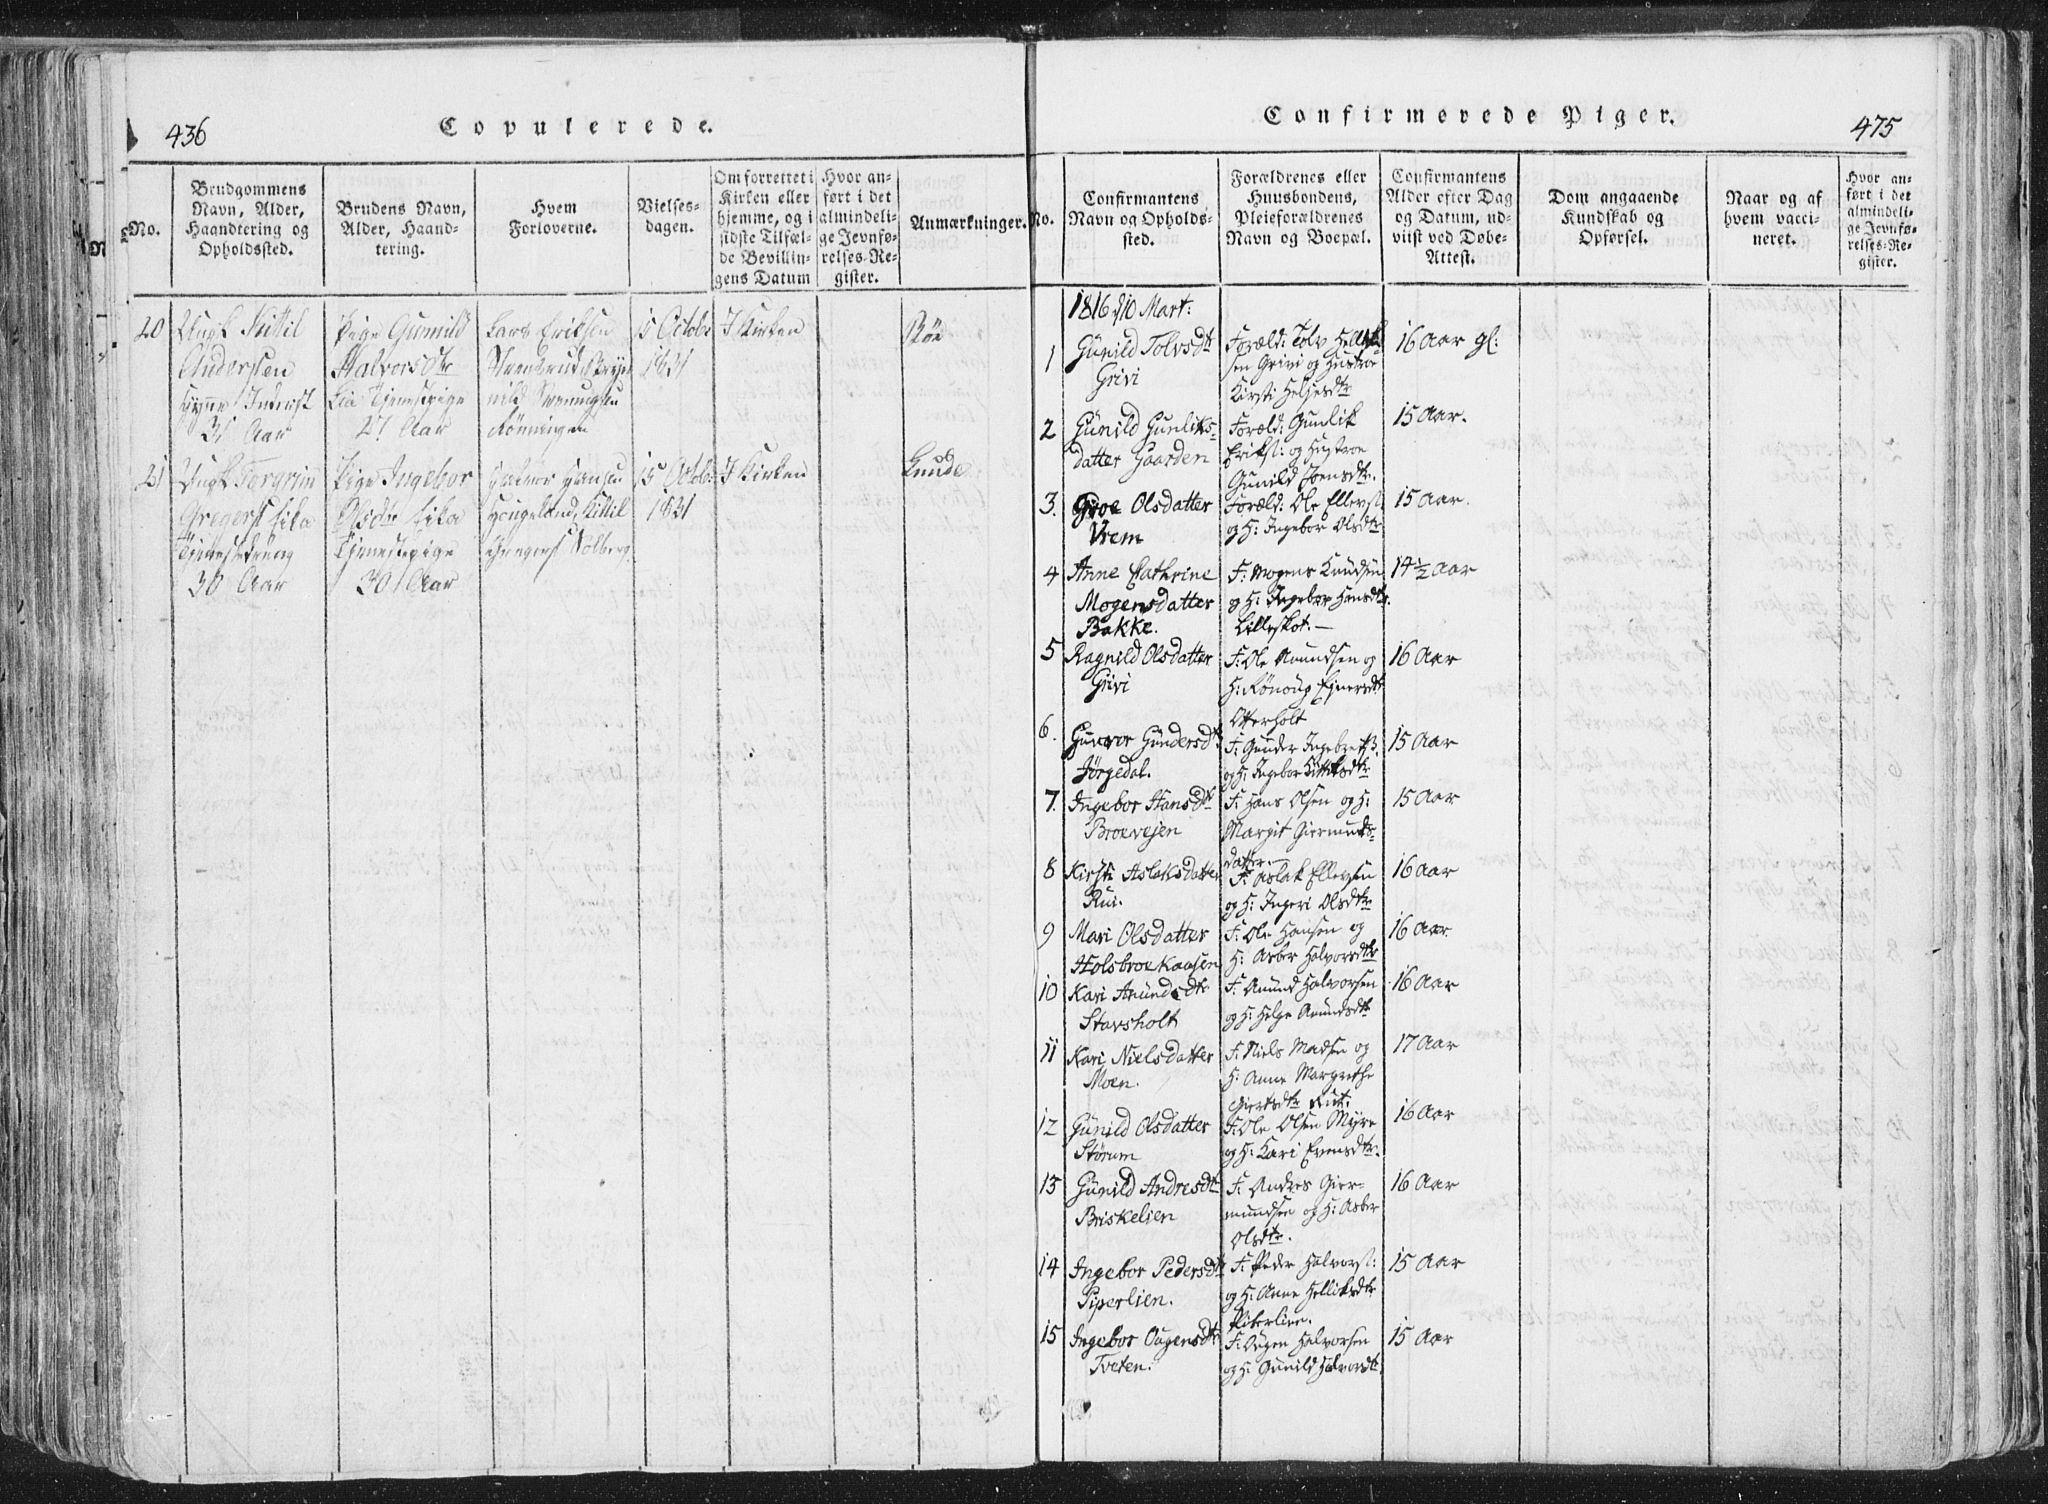 436
Copulerede.
No.
Brudgommens
Navn, Alder,
Haandtering og
Opholdssted.
Brudens Navn,
Alder, Haand-
tering.
Hvem
Forloverne.
Vielses-
dagen.
Om forrettet i
Kirken eller
hjemme, og i
sidste Tilfæl-
de Bevillin-
gens Datum
Hvor an-
ført i det
almindeli-
ge Jevnfø-
relses-Re-
gister.
Anmærkninger.
20
Ungk Kittil
Andersen
31 Aar
Pige Gunild
Halvorsdtr
Lia Tjenestpige
21 Aar
Lars Eriksen
Rönningen
15 Octobr
1831
I Kirken
Böe
21
Ungk Torgrim
Gregers Eika
30 Aar
Pige Ingebor
Olsdtr Eika
Tjenestepige
30 Aar
Halvor Hansen
Haugeland, Kittil
Gregers Solberg
15 Octobr
1831
I Kirken
Lunde
Confirmerede Piger.
475
No.
Confirmantens
Navn og Opholds-
sted.
Forældrenes eller
Huusbondens,
Pleieforældrenes
Navn og Boepæl.
Confirmantens
Alder efter Dag
og Datum, ud-
viist ved Døbe-
Attest.
Dom angaaende
Kundskab og
Opførsel.
Naar og af
hvem vacci-
neret.
Hvor an-
ført i det
almindeli-
ge Jevnfø-
relses-Re-
gister.
1816 d 10 Mart:
1
Gunild Tolvsdtr
Grivi
Foræld: Tolv Helje
sen Grivi og Hustroe
Kirsti Heljesdtr
16 Aar gl:
2
Gunild Gunliks-
datter Gaarden
Foræld: Gunlik
Erikss: og Hustroe
Gunild Joensdtr.
15 Aar.
3.
Groe Olsdatter
Vrem
Foræld: Ole Ellevs:
og H: Ingebor Olsdtr
15 Aar.
4
Anne Cathrine
Mogensdatter
Bakke.
F: Mogens Knudsen
og H: Ingebor Hansdtr.
Lilleskot.—
14½ Aar
5
Ragnild Olsdatter
Grivi
F: Ole Amundsen og
H: Rönoug Ejnersdtr
Otterholt
16 Aar
6.
Gunvor Gundersdtr
Jörgedal.
F: Gunder Ingebretss.
og H: Ingebor Kittilsdtr
15 Aar
7.
Ingebor Hansdtr
Broevejen
F: Hans Olsen og H:
Margit Giermunds-
datter.—
15 Aar
8
Kirsti Aslaksdatter
Rui.
F: Aslak Ellevsen
og H: Ingeri Olsdtr
16 Aar
9
Mari Olsdatter
Holsbroekaasen
F: Ole Hansen og
H: Asber Halvorsdtr
16 Aar
10
Kari Amundsdtr
Stavsholt
F: Amund Halvorsen
og H: Helge Amundsdtr
16 Aar
11
Kari Nielsdatter
Moen.
F: Niels Madsen og
H: Anne Margrethe
Giertsdtr Rui.
17 Aar
12
Gunild Olsdatter
Störum
F: Ole Olsen Myre
og H: Kari Evensdtr.
16 Aar
13
Gunild Andresdtr
Briskelien
F: Andres Gier-
mundsen og H: Asber
Olsdtr.
16 Aar
14
Ingebor Pedersdtr
Piperlien.
F: Peder Halvors:
og H: Anne Helliksdtr
Piberlien.
15 Aar
15
Ingebor Ougensdtr
Tveten.
F: Ougen Halvorsen
og H: Gunild Halvordtr
15 Aar